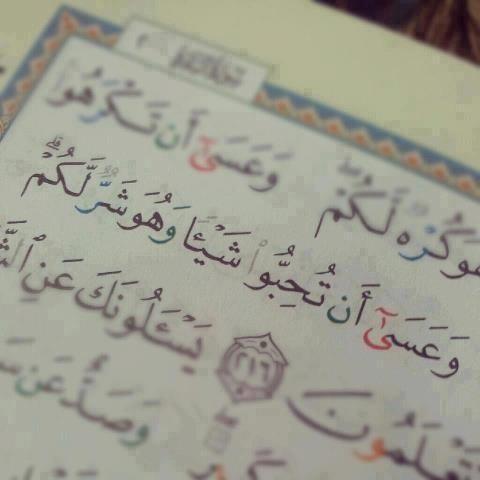 كُرْهٌ لَّكُمْ ۖ وَعَسَىٰٓ أَن تَكْرَهُوا
وَعَسَىٰٓ أَن تُحِبُّوا۟ شَيْـًٔا وَهُوَ شَرٌّ لَّكُمْ ۗ
تَعْلَمُونَ ٢١٦ يَسْـَٔلُونَكَ عَنِ
وَصَدٌّ عَن